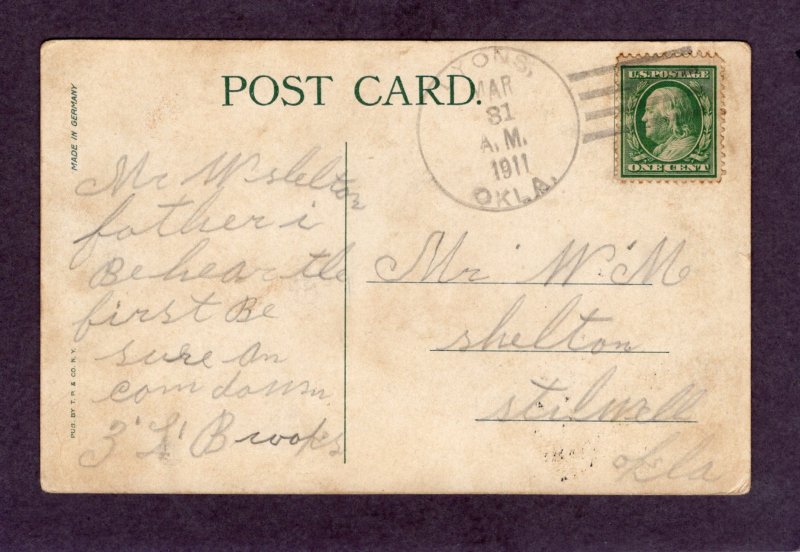 POST CARD.
MADE IN GERMANY
PUB. BY T. P. & CO. N. Y.
LYONS,
MAR
31
A.M.
1911
OKLA.
U.S. POSTAGE
ONE CENT
Mr W shelton
father i
Be hear the
first Be
sure an
com down
Brooks
Mr W M
shelton
stilwell
okla